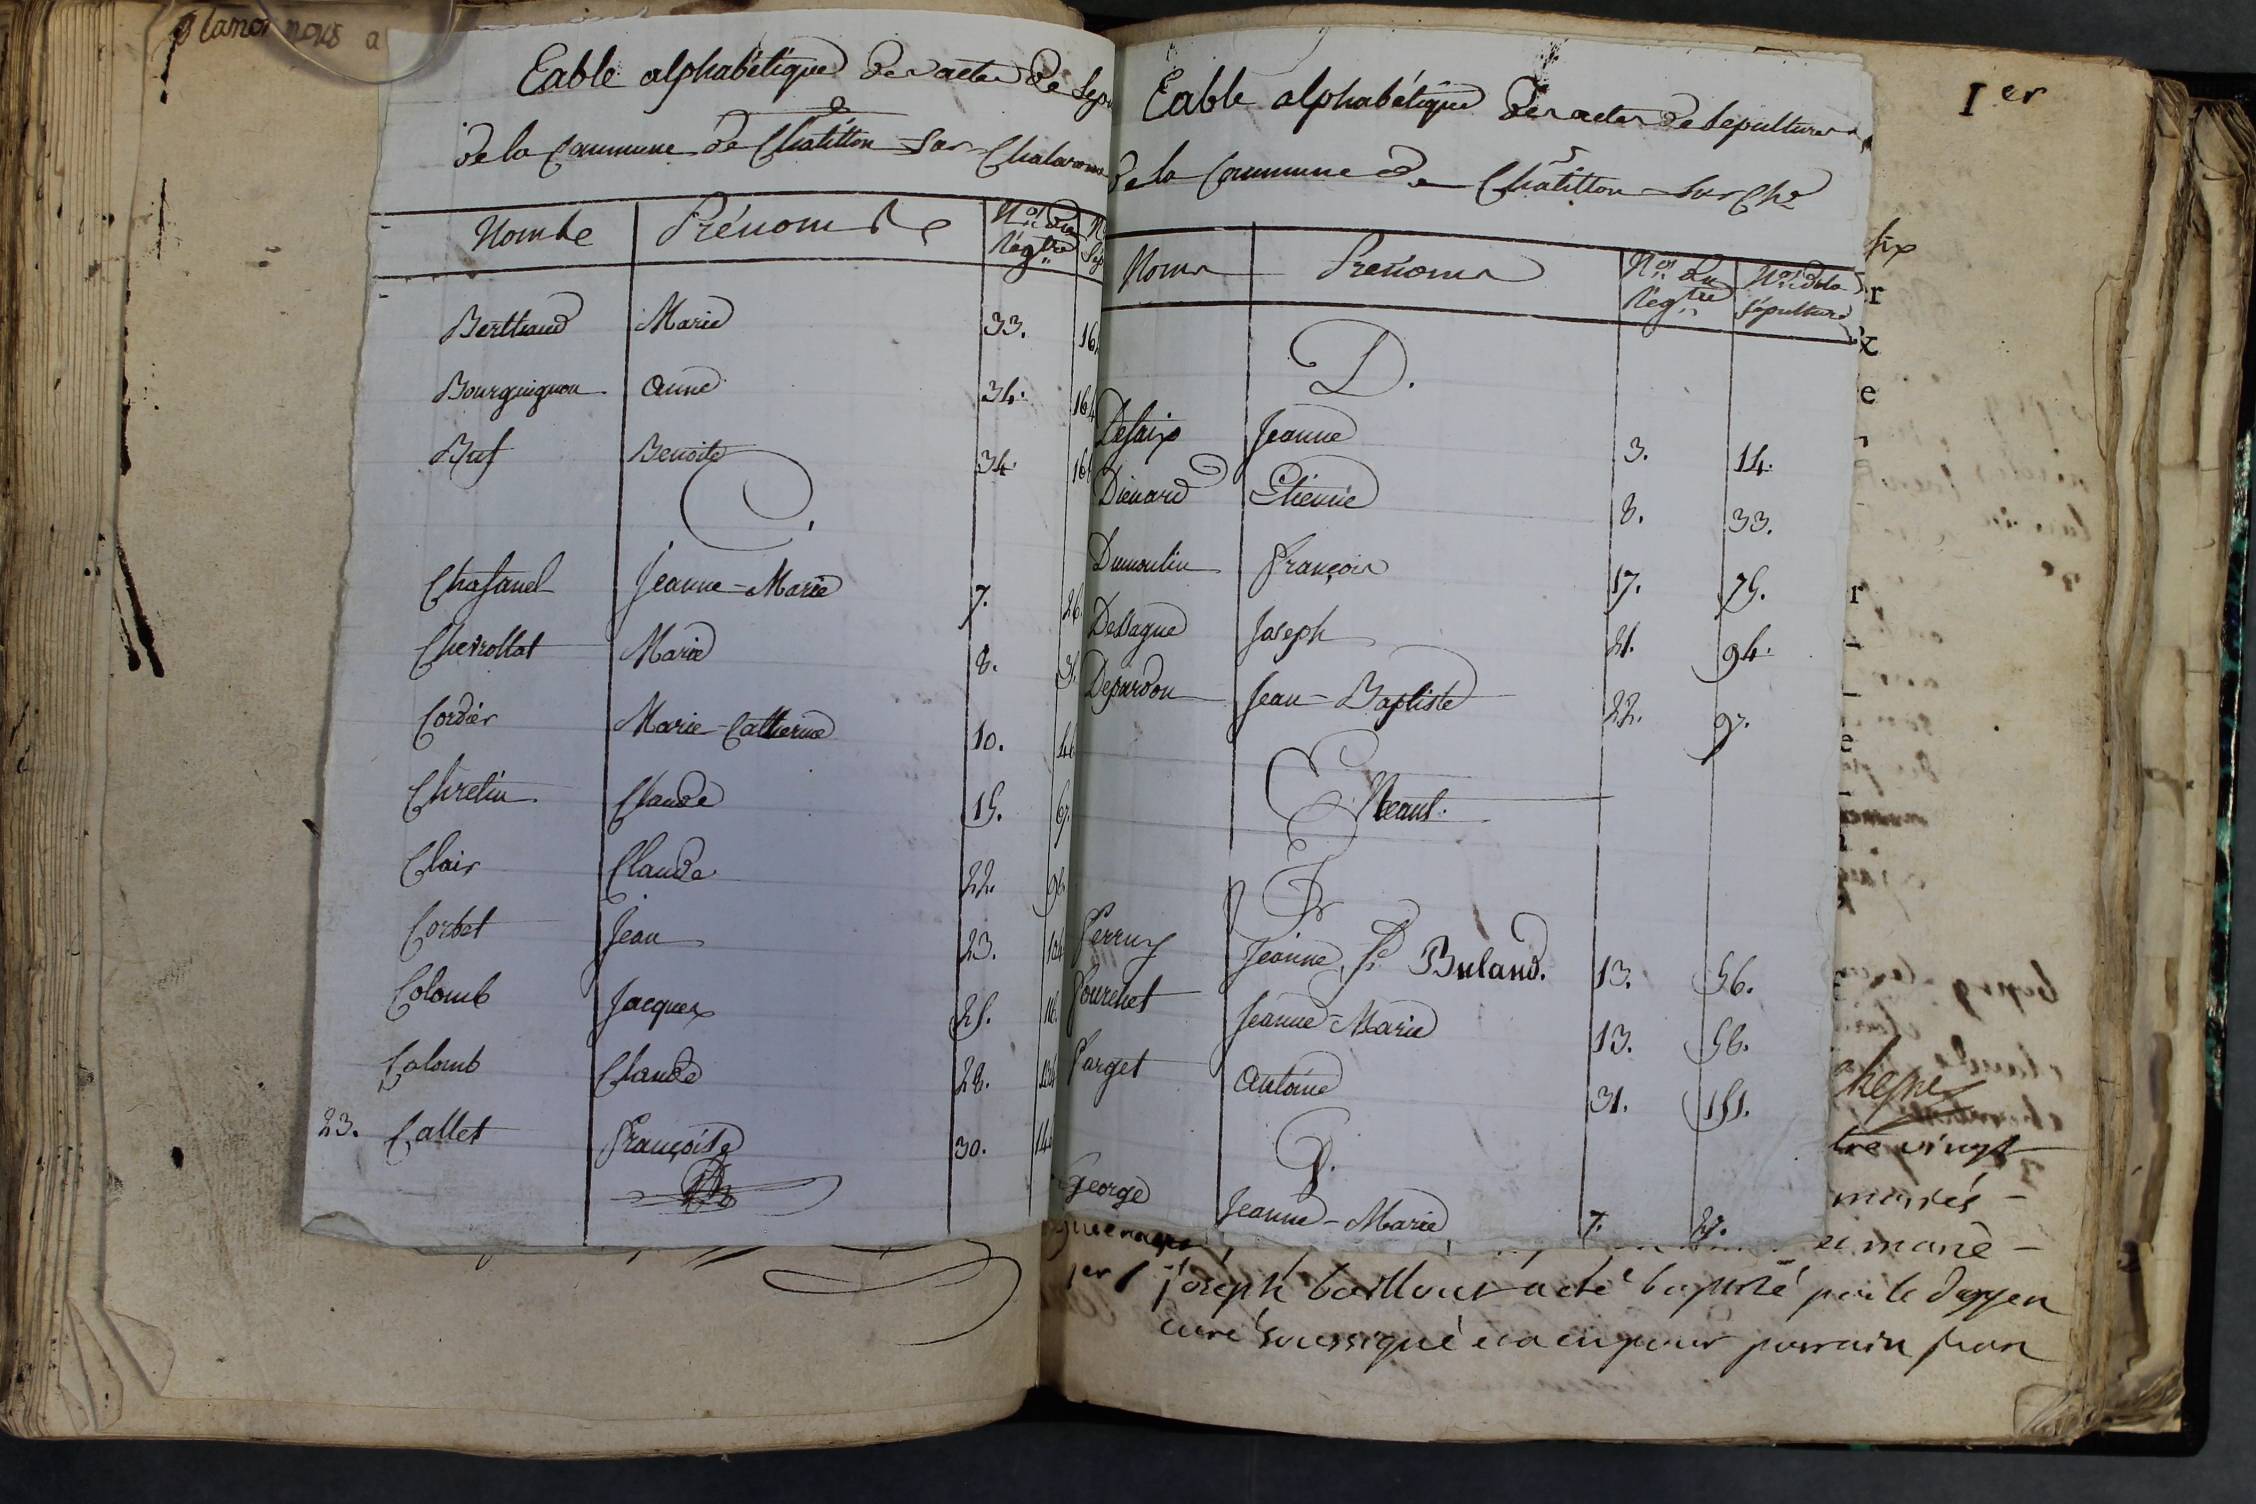 nous a
Table alphabétique des actes de Sepu
de la Commune de Chatillon sur Chalaronne
Noms Prénoms Nos. du Regtre
Bertrand Marie 33. 16
Bourguignon anne 34. 164
Buf Benoite 34. 16
C.
Chasanel Jeanne-Marie 7. 26
Chevrollat Marie 8. 3
Cordier Marie-Catherine 10. 46
Chretin Claude 15. 67.
Clair Claude 22. 98
Corbet Jean 23. 104
Colomb Jacques 25. 116.
Colomb Claude 28. 134
23. Callet Françoise 30. 14
Table alphabétique des actes de Sepultures
de la Commune de Châtillon sur Chne
Noms Prenoms Nos. du Regtre Nos. de la Sépulture
D.
Desaix Jeanne 3. 14.
Dienard Etienne 8. 33.
Dumoulin François 17. 75.
Dessague Joseph 21. 94.
Depardon Jean-Baptiste 22. 97.
E
Neant.
F
Ferruy Jeanne, fe. Buland. 13. 56.
Fourchet Jeanne-Marie 13. 58.
Farget Antoine 31. 151.
G.
George Jeanne-Marie 7. 27.
Ier
six
r
x
e
r
e
tre vingt
mariés
et marie
1er Joseph baillour a été baptisé par le doyen
curé soussigné et a eu pour parrain fran